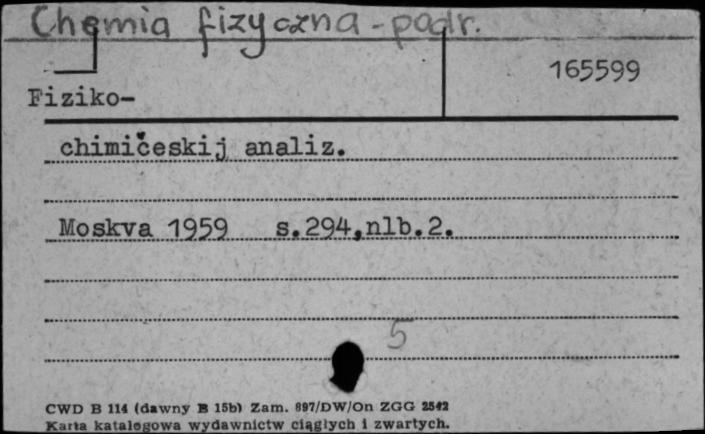 Chemia fizyczna - podr.
165599
Fiziko-
chimičeskij analiz.
Moskva 1959 s.294,nlb.2.
5
CWD B 114 (dawny B 15b) Zam. 897/DW/On ZGG 2542
Karta katalogowa wydawnictw ciągłych i zwartych.